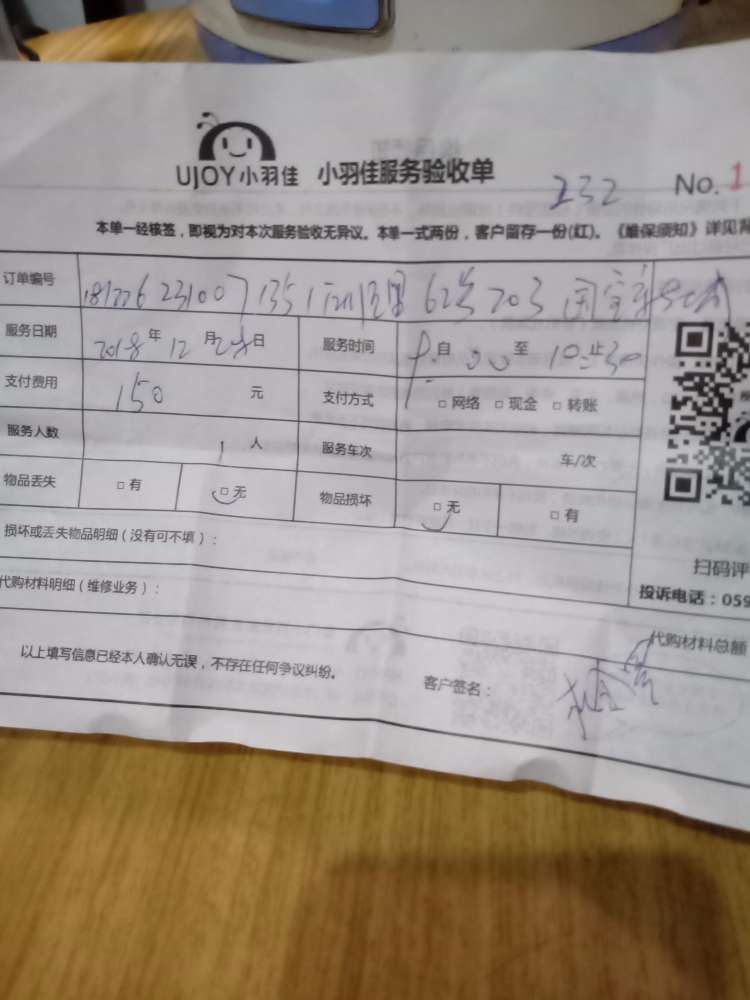 UJOY小羽佳 小羽佳服务验收单
232 No. 1
本单一经核签，即视为对本次服务验收无异议。本单一式两份，客户留存一份(红)。《维保须知》详见背
订单编号 62 203
服务日期 2018年12月28日 服务时间 9:自00至10:止30
支付费用 150 元 支付方式 □ 网络 □ 现金 □ 转账
服务人数 1 人 服务车次 车/次
物品丢失 □ 有 □ 无 物品损坏 □ 无 □ 有
损坏或丢失物品明细（没有可不填）：
扫码评
代购材料明细（维修业务）：
投诉电话：059
代购材料总额
以上填写信息已经本人确认无误，不存在任何争议纠纷。 客户签名：